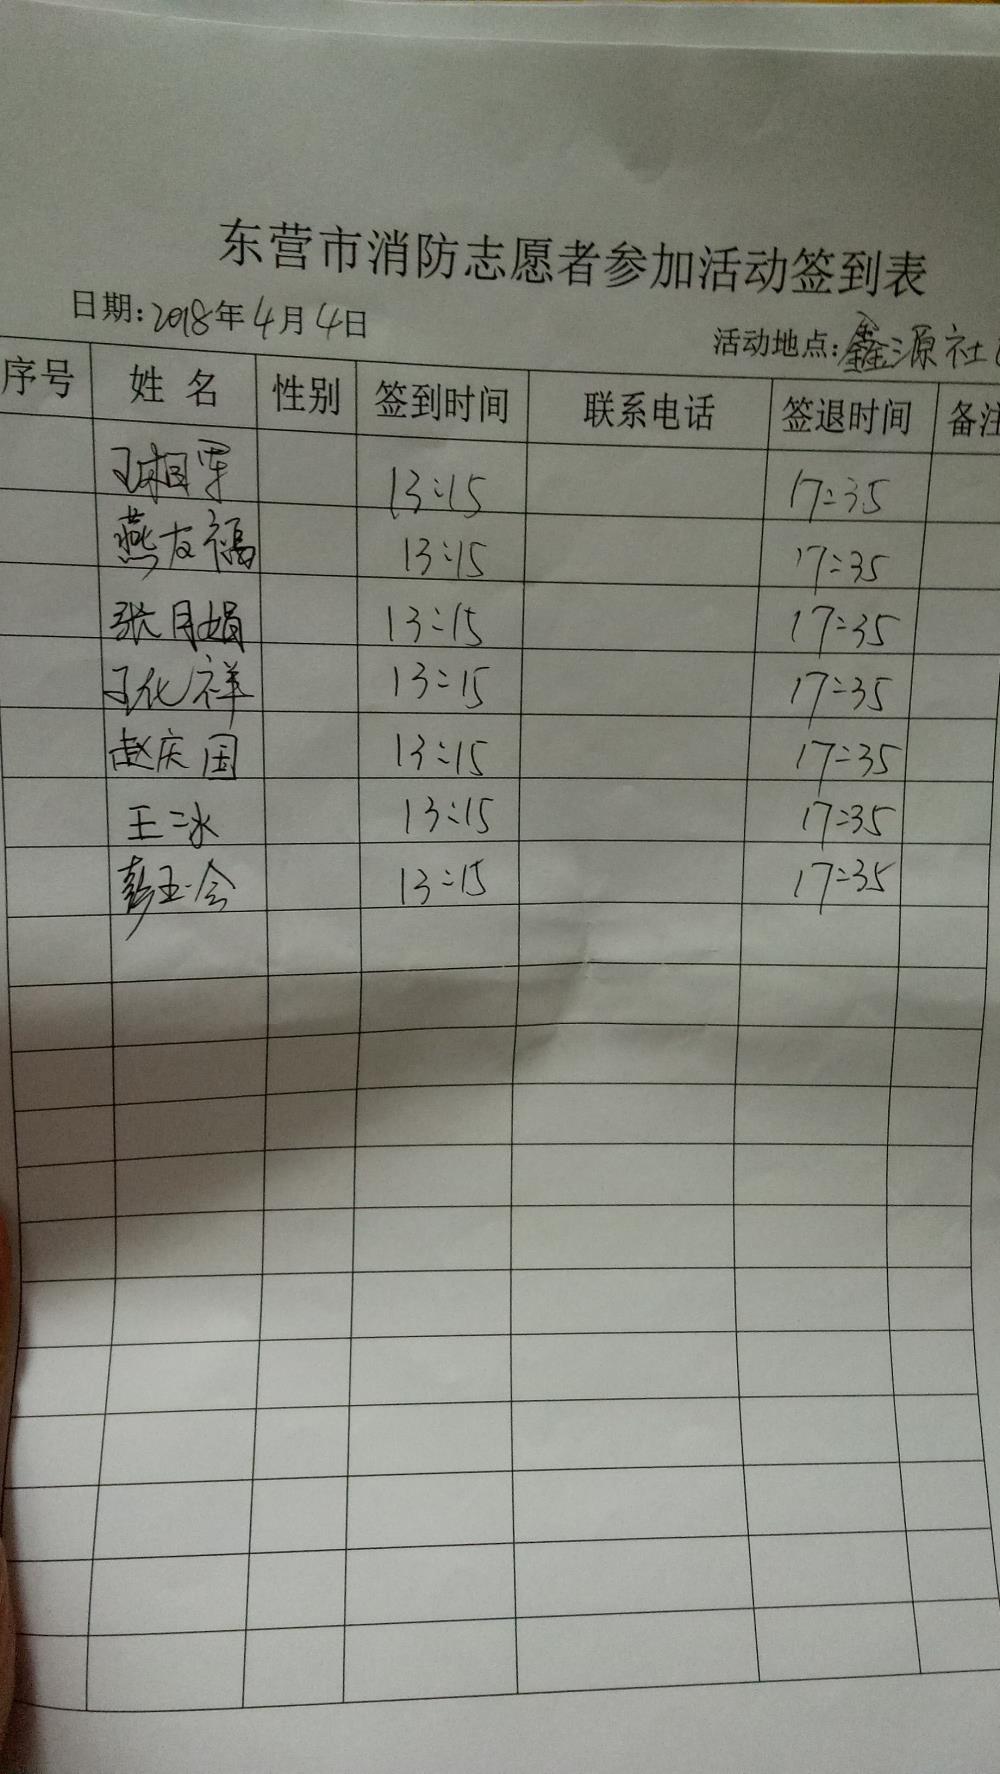 东营市消防志愿者参加活动签到表
日期:2018年4月4日
活动地点:鑫源社
序号 姓名 性别 签到时间 联系电话 签退时间 备注
王相军 13:15 17:35
燕友福 13:15 17:35
张月娟 13:15 17:35
王化祥 13:15 17:35
赵庆国 13:15 17:35
王二冰 13:15 17:35
彭玉会 13:15 17:35